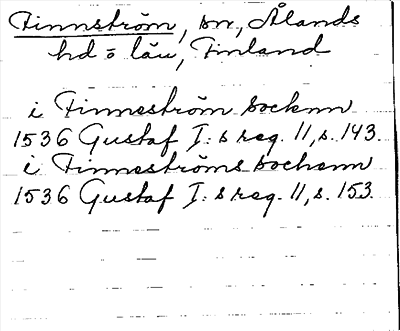 Finnström, sn, Ålands
hd o län, Finland
i Finneström Socknn
1536 Gustaf I:s reg. 11, s. 143.
i Finneströms Sochenn
1536 Gustaf I:s reg. 11, s. 153.